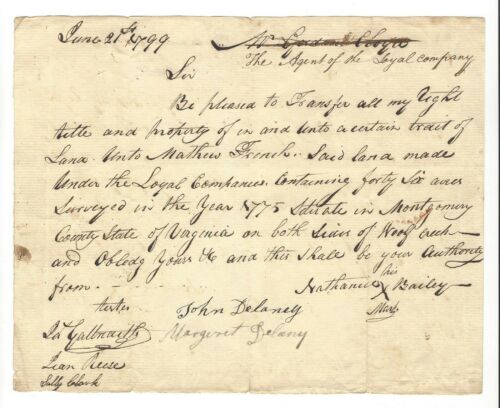 June 21st 1799
Mr Gordon Cloyd
The Agent of the Loyal Company
Sir
Be pleased to Transfer all my Right
title and Property of in and unto a certain trait of
Land. Unto Mathew French. Said land made
Under the Loyal Companies. Containing forty Six acres
Surveyed in the Year 1775 Setuate in Montgomery
County State of Virginia on both Sides of Woolf Creek
and Obledg yours &c and this Shale be your Authority
from —
his
Nathaniel X Bailey
Mark
testes
John Delaney
Galbraith
Margeret Delany
Jean Reese
Sally Clark